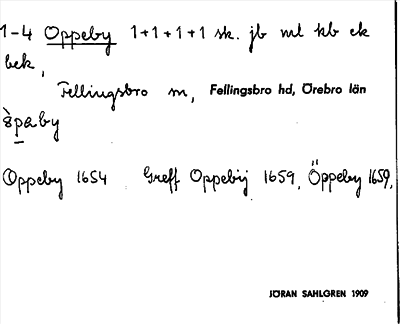 1-4 Oppeby 1+1+1+1 sk. jb ml kb ek
bek,
Fellingsbro m, Fellingsbro hd, Örebro län
òpaby
Oppeby 1654 Greff Oppebÿ 1659, Öppeby 1659,
JÖRAN SAHLGREN 1909